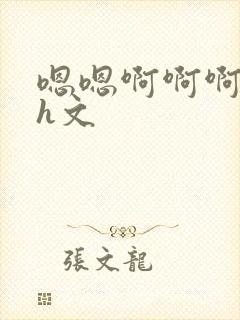 嗯嗯啊啊啊
h文
張文龍